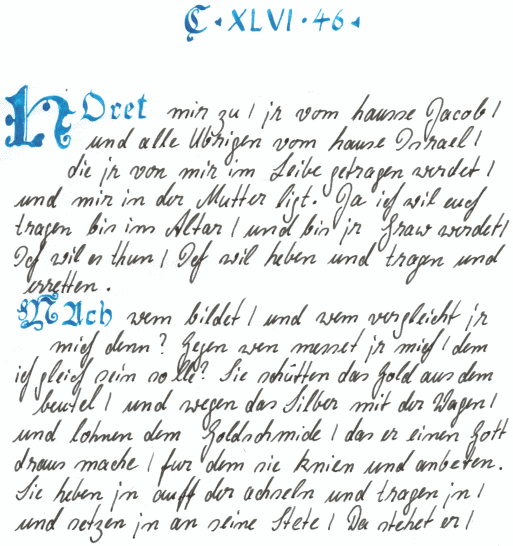 C · XLVI · 46 ·
HOret mir zu / jr vom hausse Jacob /
und alle Ubrigen vom hause Israel /
die jr von mir im Leibe getragen werdet /
und mir in der Mutter ligt. Ja ich wil euch
tragen bis ins Altar / und bis jr graw werdet /
Ich wil es thun / Ich wil heben und tragen und
erretten.
NAch wem bildet / und wem vergleicht jr
mich denn? Gegen wen messet jr mich / dem
ich gleich sein solle? Sie schütten das Gold aus dem
beutel / und wegen das Silber mit der Wagen /
und lohnen dem Goldschmide / das er einen Gott
draus mache / fur dem sie knien und anbeten.
Sie heben jn auff der achseln und tragen jn /
und setzen jn an seine Stete / Da stehet er /